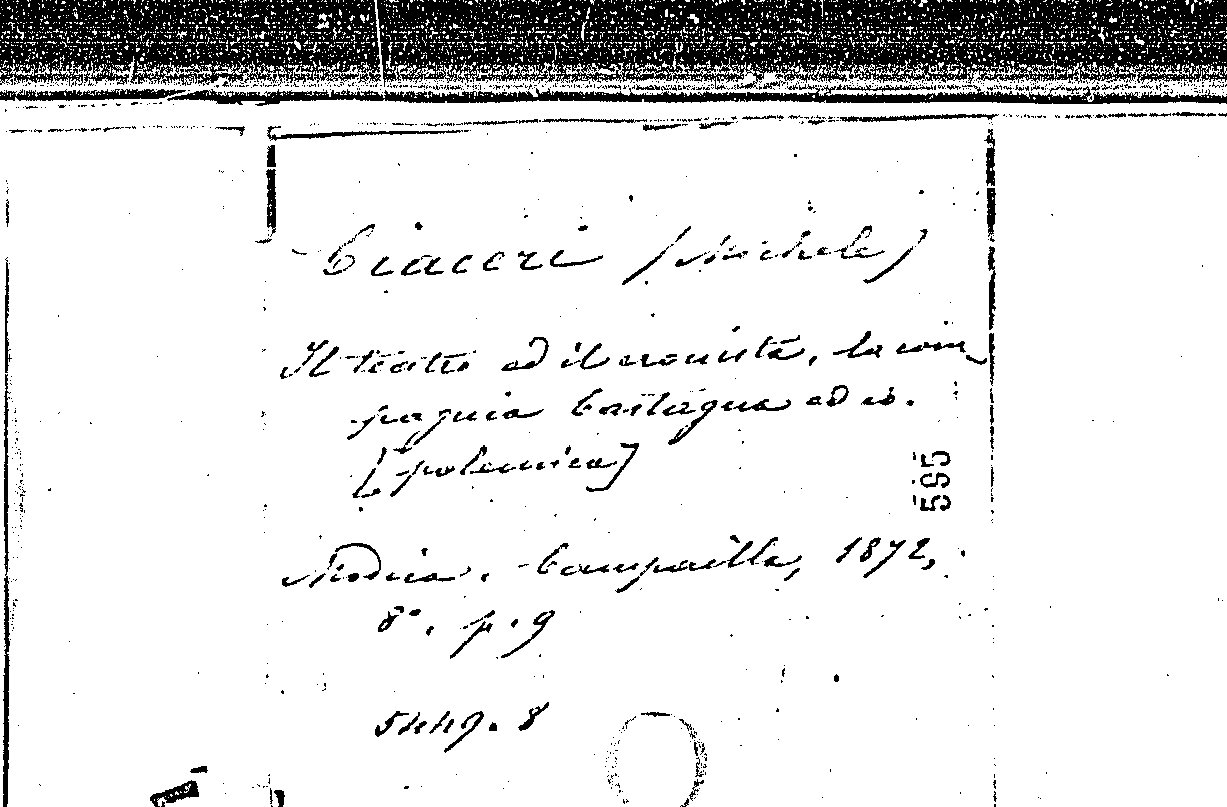 Ciaceri (Michele)
Il teatro ed il cronista, la com
pagnia Castagna ed io.
[polemica]
595
Modica. Campailla, 1872,
8°. p. 9
5449. 8